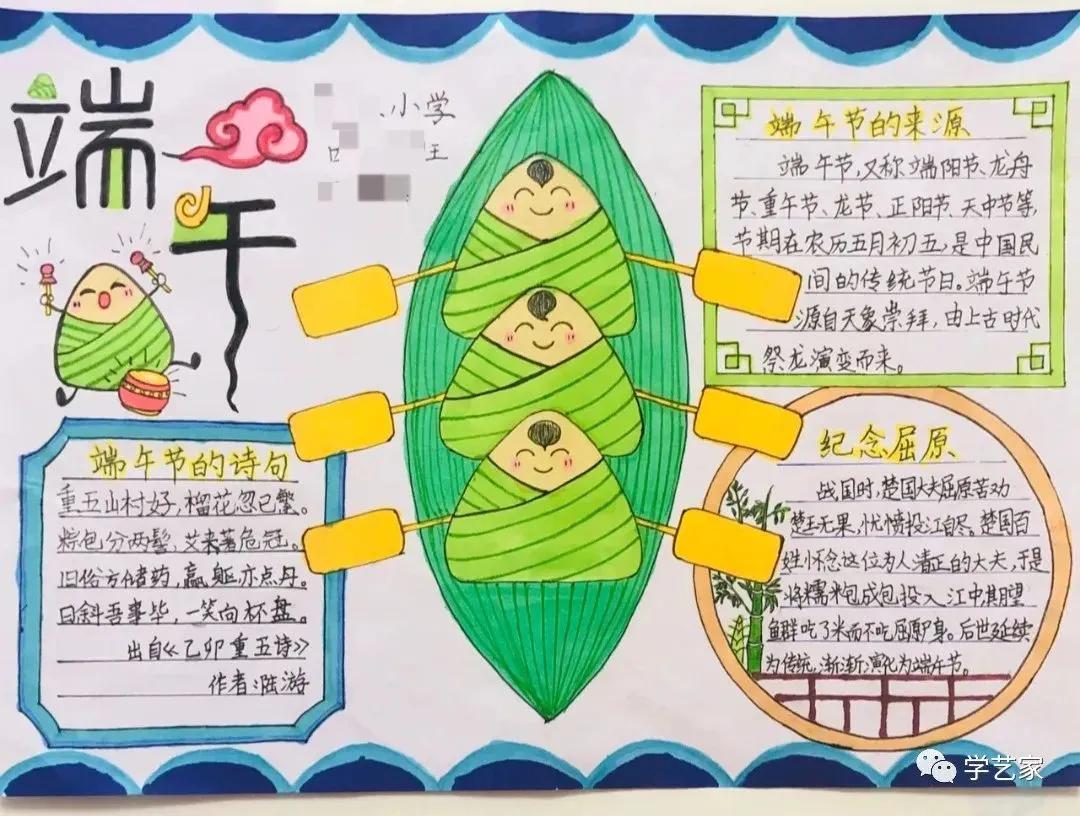 端午
小学
端午节的来源
端午节,又称端阳节、龙舟
节、重午节、龙节、正阳节、天中节等,
节期在农历五月初五,是中国民
间的传统节日。端午节
源自天象崇拜,由上古时代
祭龙演变而来。
端午节的诗句
重五山村好,榴花忽已繁。
粽包分两髻,艾束著危冠。
旧俗方储药,羸躯亦点丹。
日斜吾事毕,一笑向杯盘。
出自《乙卯重五诗》
作者:陆游
纪念屈原
战国时,楚国大夫屈原苦劝
楚王无果,忧愤投江自尽。楚国百
姓怀念这位为人清正的大夫,于是
将糯米包成包投入江中,期望
鱼群吃了米而不吃屈原的身。后世延续
为传统,渐渐演化为端午节。
学艺家